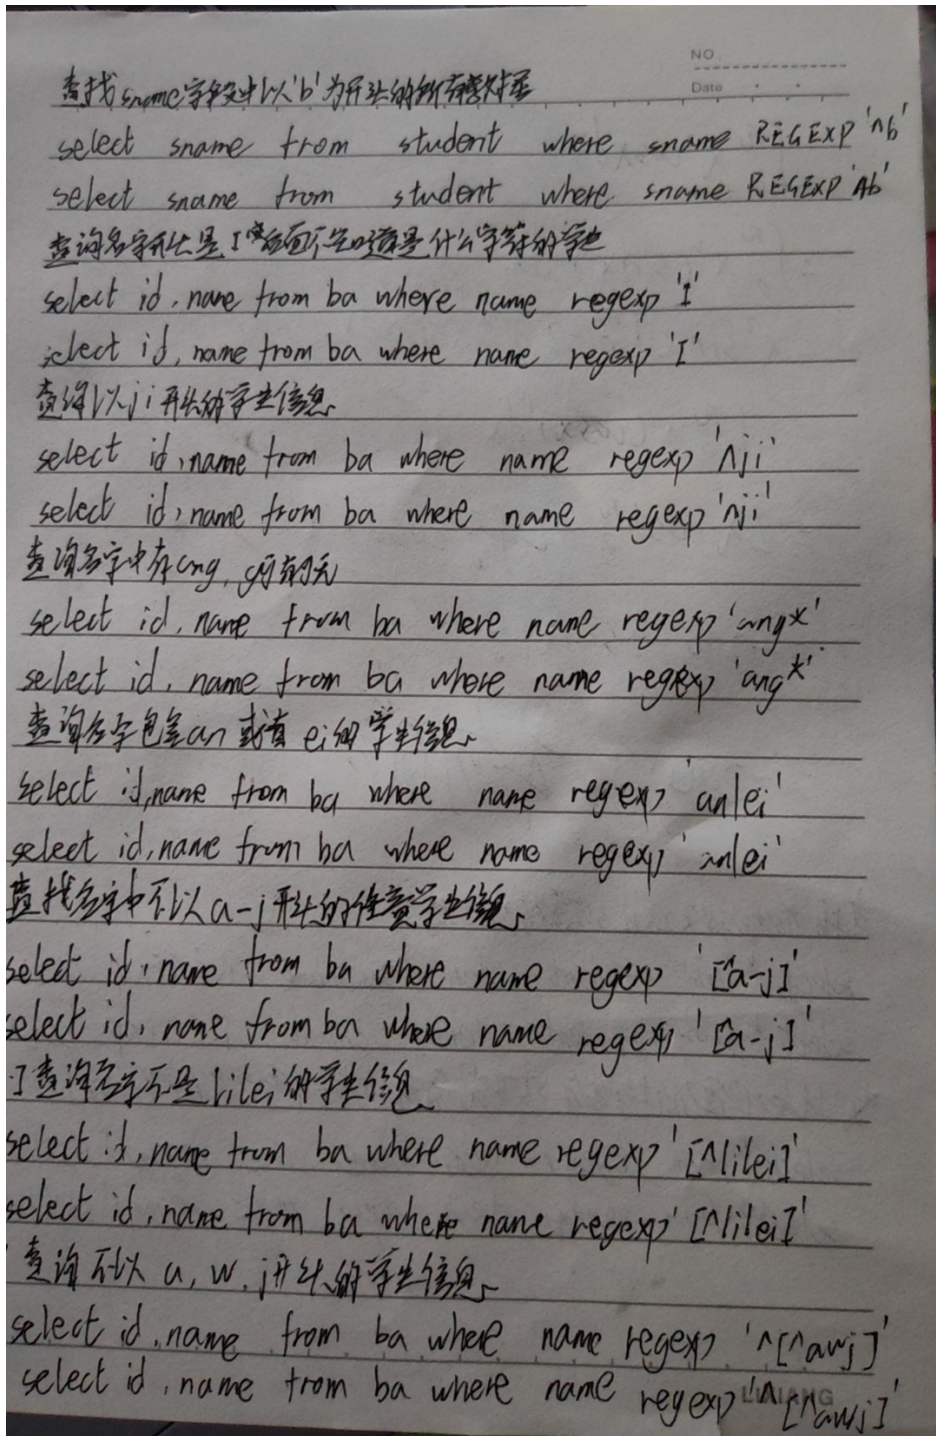 NO.
Date
查找sname字段中以'b'为开头的所有
select sname from student where sname REGEXP '^b'
select sname from student where sname REGEXP '^b'
查询名字开头是I 后面不知道是什么字符的学生
select id, name from ba where name regexp 'I'
select id, name from ba where name regexp 'I'
查询以ji开头的学生信息
select id, name from ba where name regexp '^ji'
select id, name from ba where name regexp '^ji'
查询名字中有ang, g可有可无
select id, name from ba where name regexp 'ang*'
select id, name from ba where name regexp 'ang*'
查询名字包含an 或者 ei的学生信息
select id, name from ba where name regexp 'an|ei'
select id, name from ba where name regexp 'an|ei'
查找名字中不以a-j开头的任意学生信息
select id, name from ba where name regexp '[^a-j]'
select id, name from ba where name regexp '[^a-j]'
查询名字不是lilei的学生信息
select id, name from ba where name regexp '[^lilei]'
select id, name from ba where name regexp '[^lilei]'
查询不以a, w, j开头的学生信息
select id, name from ba where name regexp '^[^awj]'
select id, name from ba where name regexp '^[^awj]'